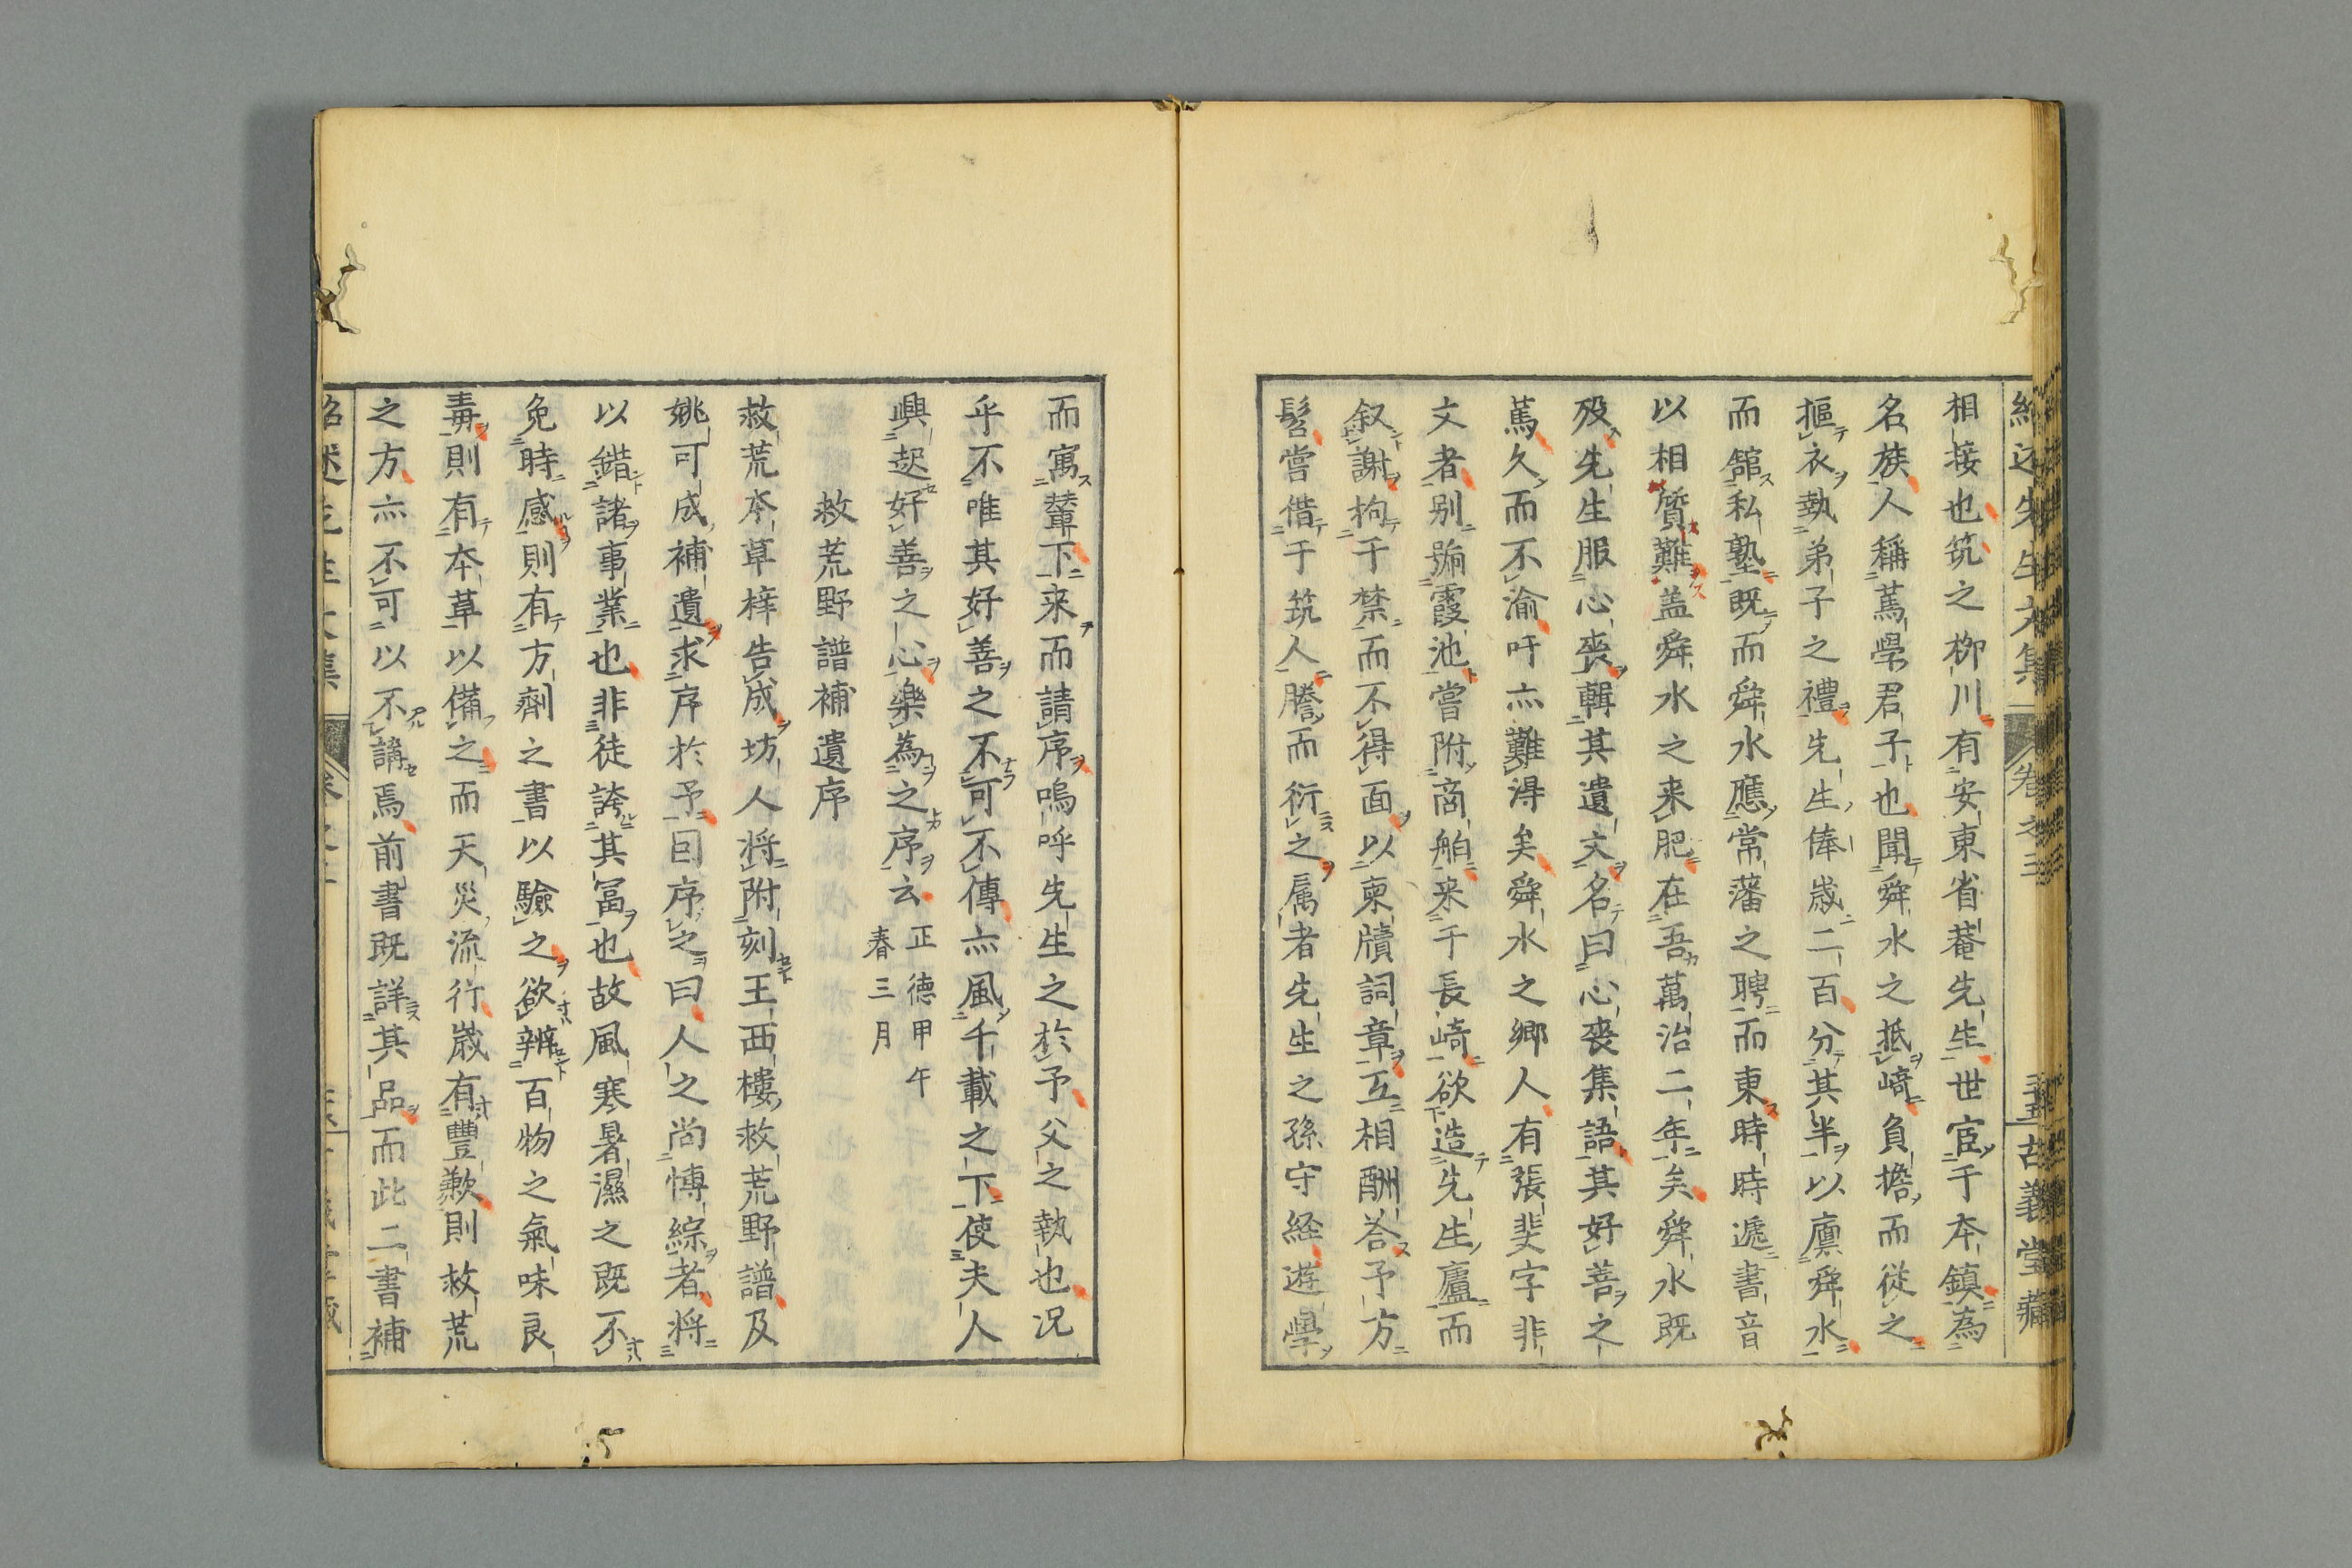 相接也筑之柳川有安東省菴先生世宦于本鎮為
名族人稱篤學君子也聞舜水之抵崎負擔而従之
摳衣執弟子之禮先生俸歳二百分其半以廩舜水
而舘私塾既而舜水應常藩之聘而東時時逓書音
以相質難盖舜水之来肥在吾萬治二年矣舜水既
歿先生服心喪輯其遺文名曰心喪集語其好善之
篤久而不渝吁亦難得矣舜水之郷人有張斐字非
文者别號霞池嘗附商舶来于長崎欲造先生廬而
叙謝拘于禁而不得面以柬牘詞章互相酬荅予方
髫嘗借于筑人謄而衍之属者先生之孫守経遊學
而寓輦下来而請序嗚呼先生之於予父之執也况
乎不唯其好善之不可不傳亦風千載之下使夫人
興起好善之心樂為之序云 正德甲午
春三月
救荒野譜補遺序
救荒本草梓告成坊人将附刻王西樓救荒野譜及
姚可成補遺求序於予囙序之曰人之尚博綜者将
以錯諸事業也非徒誇其冨也故風寒暑濕之既不
免時感則有方劑之書以驗之欲辨百物之氣味良
毒則有本草以備之而天災流行歳有豐歉則救荒
之方亦不可以不講焉前書既詳其品而此二書補
卷之三
古義堂藏